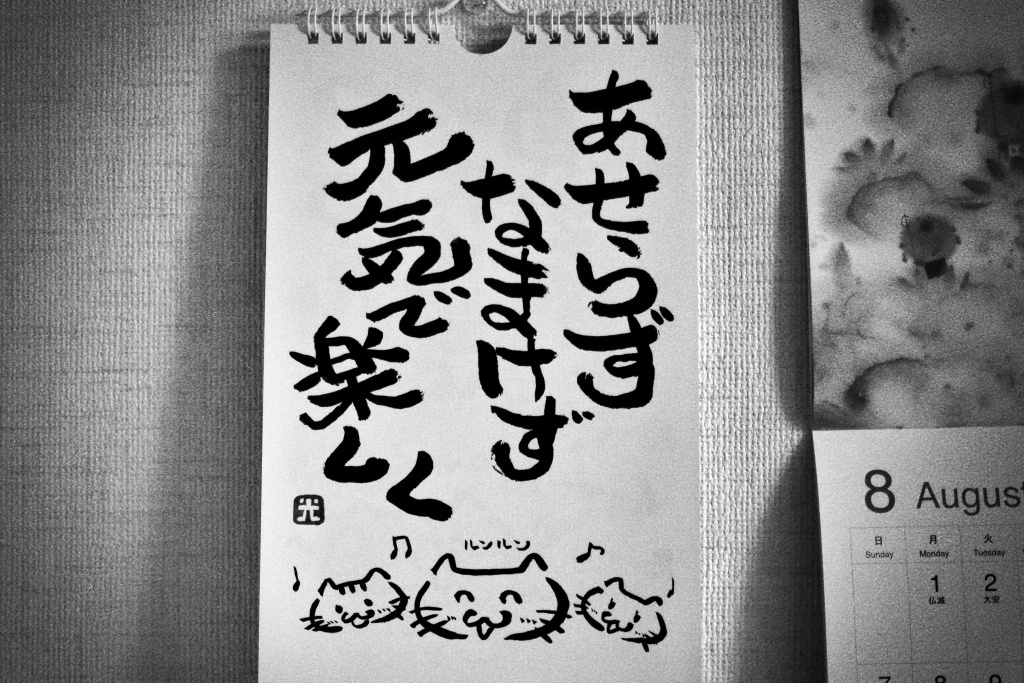 あせらず
なまけず
元気で
楽しく
光
ルンルン
8 August
日 月 火
Sunday Monday Tuesday
1 2
仏滅 大安
7 8 9